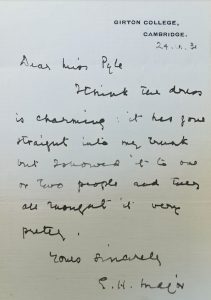 GIRTON COLLEGE,
CAMBRIDGE.
24.1.31
Dear Miss Pyle
I think the dress
is charming: it has gone
straight into my trunk
but I showed it to one
or two people and they
all thought it very
pretty.
Yours sincerely
E. H. Major